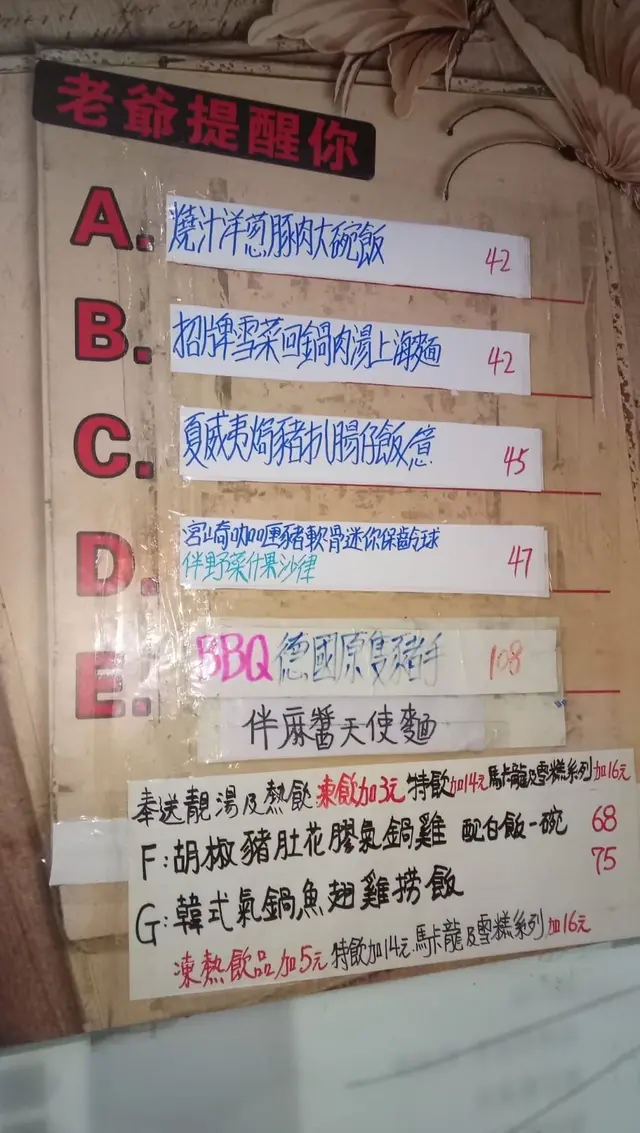 老爺提醒你
A. 燒汁洋蔥豚肉大碗飯 42
B. 招牌雪菜回鍋肉湯上海麵 42
C. 夏威夷焗豬扒腸仔飯意 45
D. 宮崎咖喱豬軟骨迷你保齡球 47
伴野菜什果沙律
E. BBQ德國原隻豬手 108
伴麻醬天使麵
奉送靚湯及熱飲 凍飲加3元 特飲加14元 馬卡龍及雪糕系列加16元
F:胡椒豬肚花膠氣鍋雞 配白飯一碗 68
G:韓式氣鍋魚翅雞撈飯 75
凍熱飲品加5元 特飲加14元.馬卡龍及雪糕系列加16元